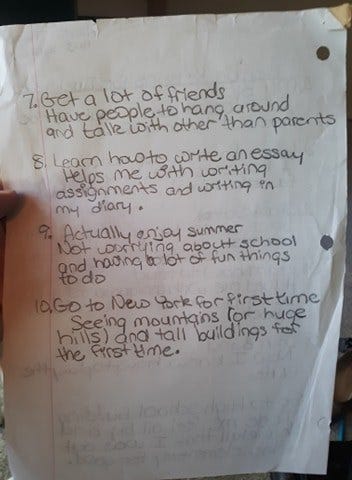 7. Get a lot of friends
Have people to hang around
and talk with other than parents
8. Learn how to write an essay
Helps me with writing
assignments and writing in
my diary.
9. Actually enjoy summer
Not worrying about school
and having a lot of fun things
to do
10. Go to New York for first time
Seeing mountains (or huge
hills) and tall buildings for
the first time.